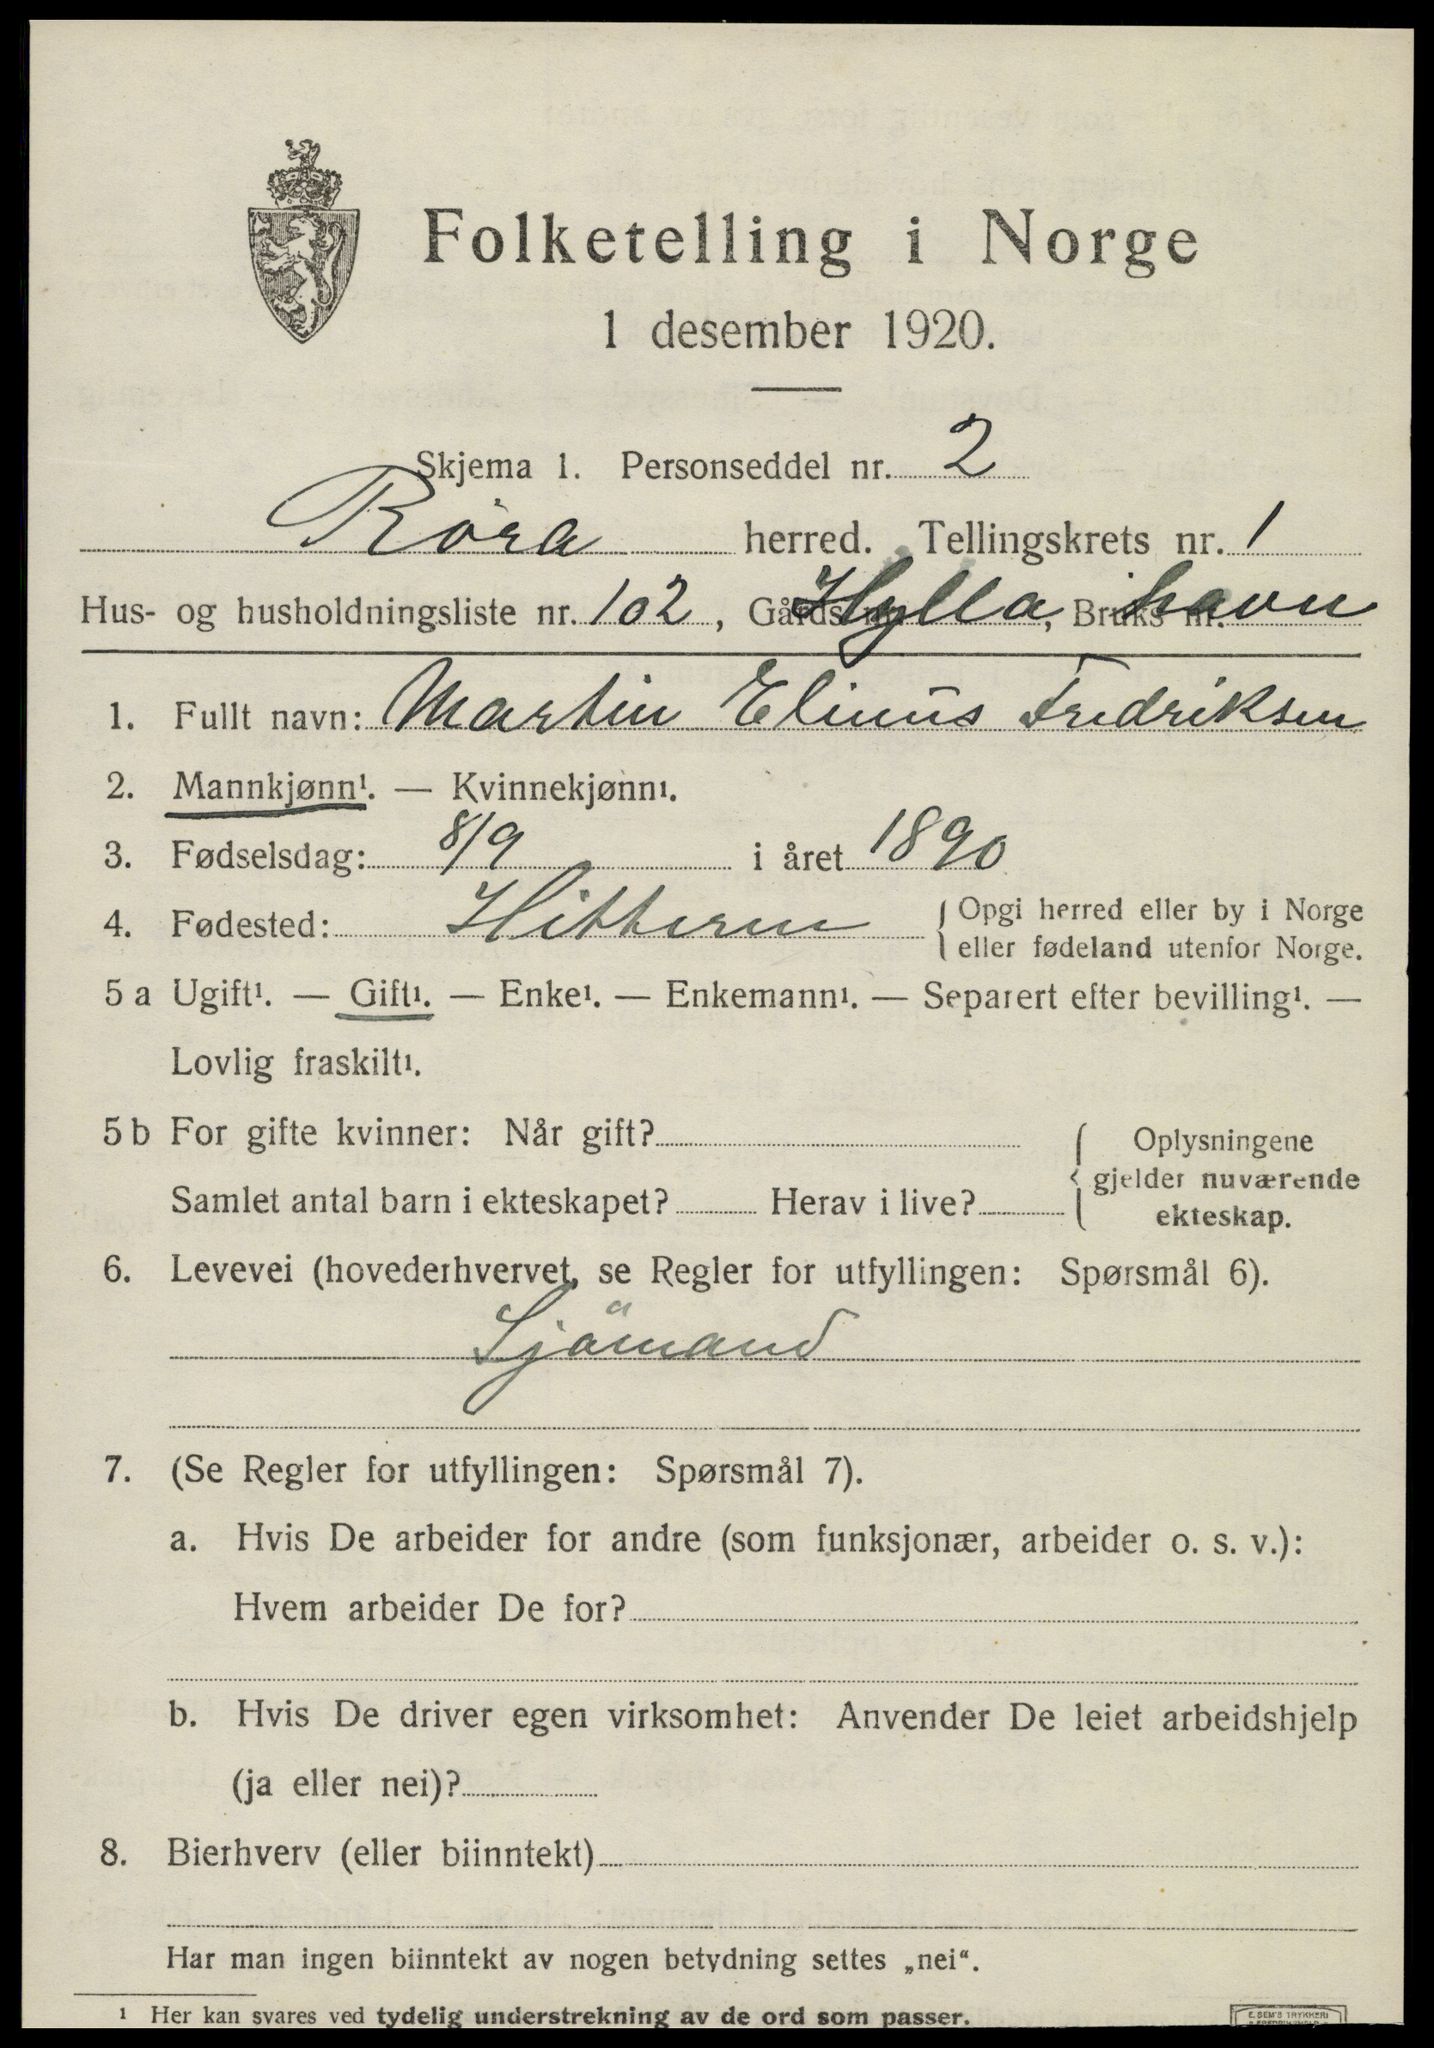 Folketelling i Norge
1 desember 1920.
Skjema 1. Personseddel nr. 2
Röra herred. Tellingskrets nr. 1
Hus- og husholdningsliste nr. 102, Gårds nr. Hylla, Bruks nr. havn
1. Fullt navn: Martin Elinus Fredriksen
2. Mannkjønn¹. — Kvinnekjønn¹.
3. Fødselsdag: 8/9 i året 1890
4. Fødested: Hitteren { Opgi herred eller by i Norge
eller fødeland utenfor Norge.
5 a Ugift¹. — Gift¹. — Enke¹. — Enkemann¹. — Separert efter bevilling¹. —
Lovlig fraskilt¹.
5 b For gifte kvinner: Når gift?
Samlet antal barn i ekteskapet? Herav i live?
{ Oplysningene
gjelder nuværende
ekteskap.
6. Levevei (hovederhvervet, se Regler for utfyllingen: Spørsmål 6).
Sjömand
7. (Se Regler for utfyllingen: Spørsmål 7).
a. Hvis De arbeider for andre (som funksjonær, arbeider o. s. v.):
Hvem arbeider De for?
b. Hvis De driver egen virksomhet: Anvender De leiet arbeidshjelp
(ja eller nei)?
8. Bierhverv (eller biinntekt)
Har man ingen biinntekt av nogen betydning settes „nei“.
¹ Her kan svares ved tydelig understrekning av de ord som passer.
E. SEM'S TRYKKERI